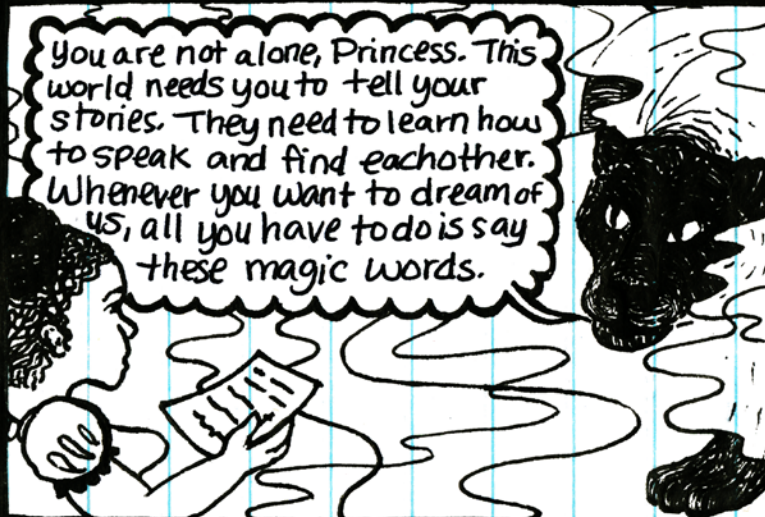 You are not alone, Princess. This
world needs you to tell your
stories. They need to learn how
to speak and find eachother.
Whenever you want to dream of
us, all you have to do is say
these magic words.